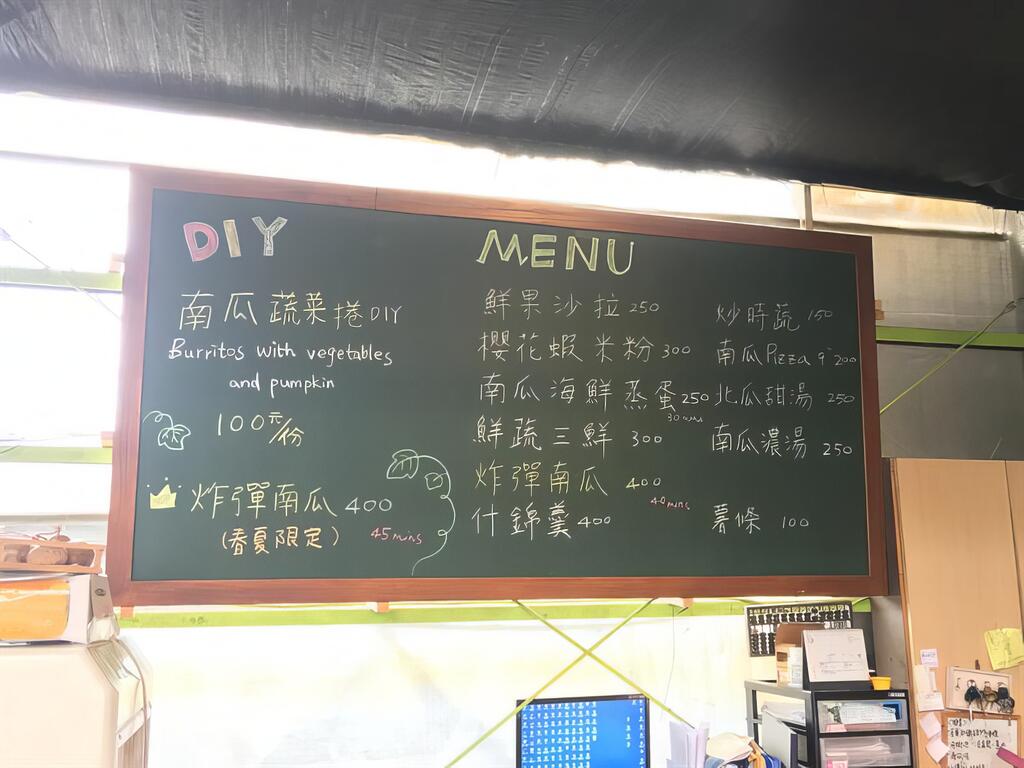 DIY
南瓜蔬菜捲DIY
Burritos with vegetables
and pumpkin
100元/份
炸彈南瓜 400
(春夏限定) 45mins
MENU
鮮果沙拉 250
櫻花蝦米粉 300
南瓜海鮮蒸蛋 250
30mins
鮮蔬三鮮 300
炸彈南瓜 400
40mins
什錦羹 400
炒時蔬 150
南瓜Pizza 9" 200
北瓜甜湯 250
南瓜濃湯 250
薯條 100